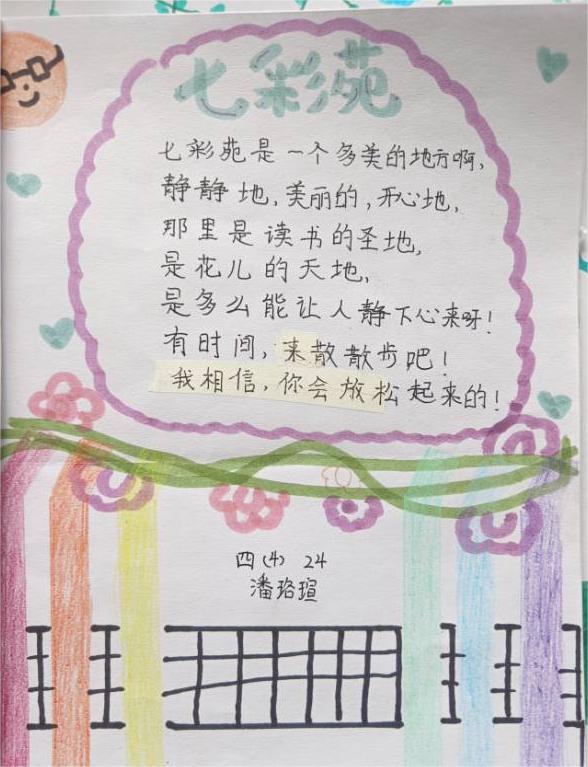 七彩苑
七彩苑是一个多美的地方啊,
静静地,美丽的,开心地,
那里是读书的圣地,
是花儿的天地,
是多么能让人静下心来呀!
有时间,来散散步吧!
我相信,你会放松起来的!
四(4) 24
潘珞瑄